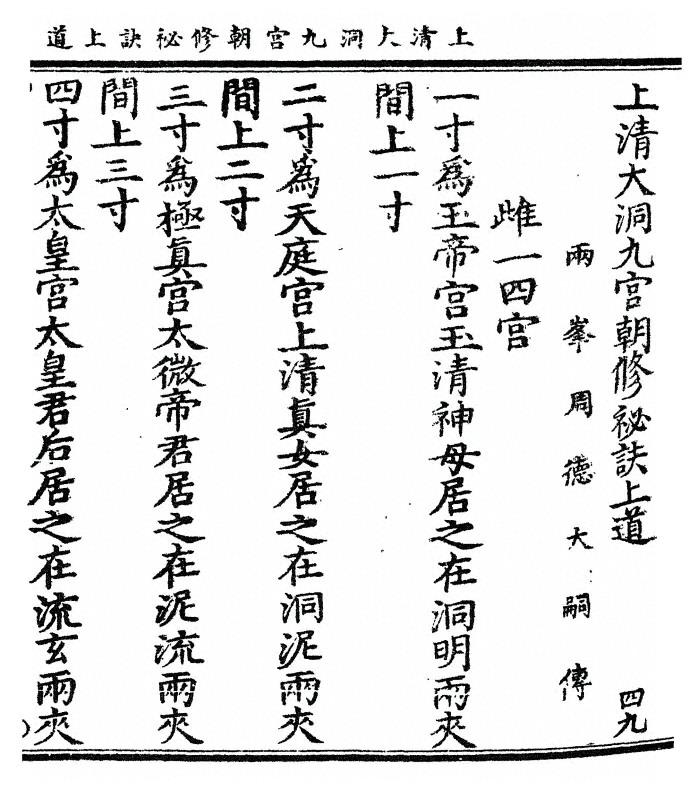 上清大洞九宮朝修祕訣上道
上清大洞九宮朝修祕訣上道
四九
兩峯周德大嗣傳
雌一四宮
一寸爲玉帝宮玉清神母居之在洞明兩夾
間上一寸
二寸爲天庭宮上清眞女居之在洞泥兩夾
間上二寸
三寸爲極眞宮太微帝君居之在泥流兩夾
間上三寸
四寸爲太皇宮太皇君后居之在流玄兩夾